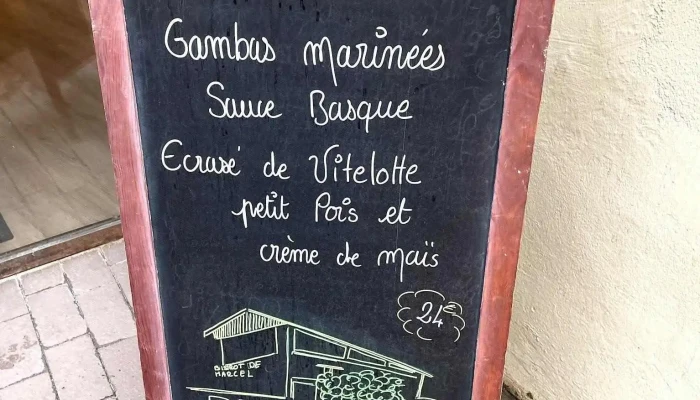 Gambas marinées
Sauce Basque
Ecrasé de Vitelotte
petit Pois et
crème de maïs
24€
BISTROT DE
MARCEL